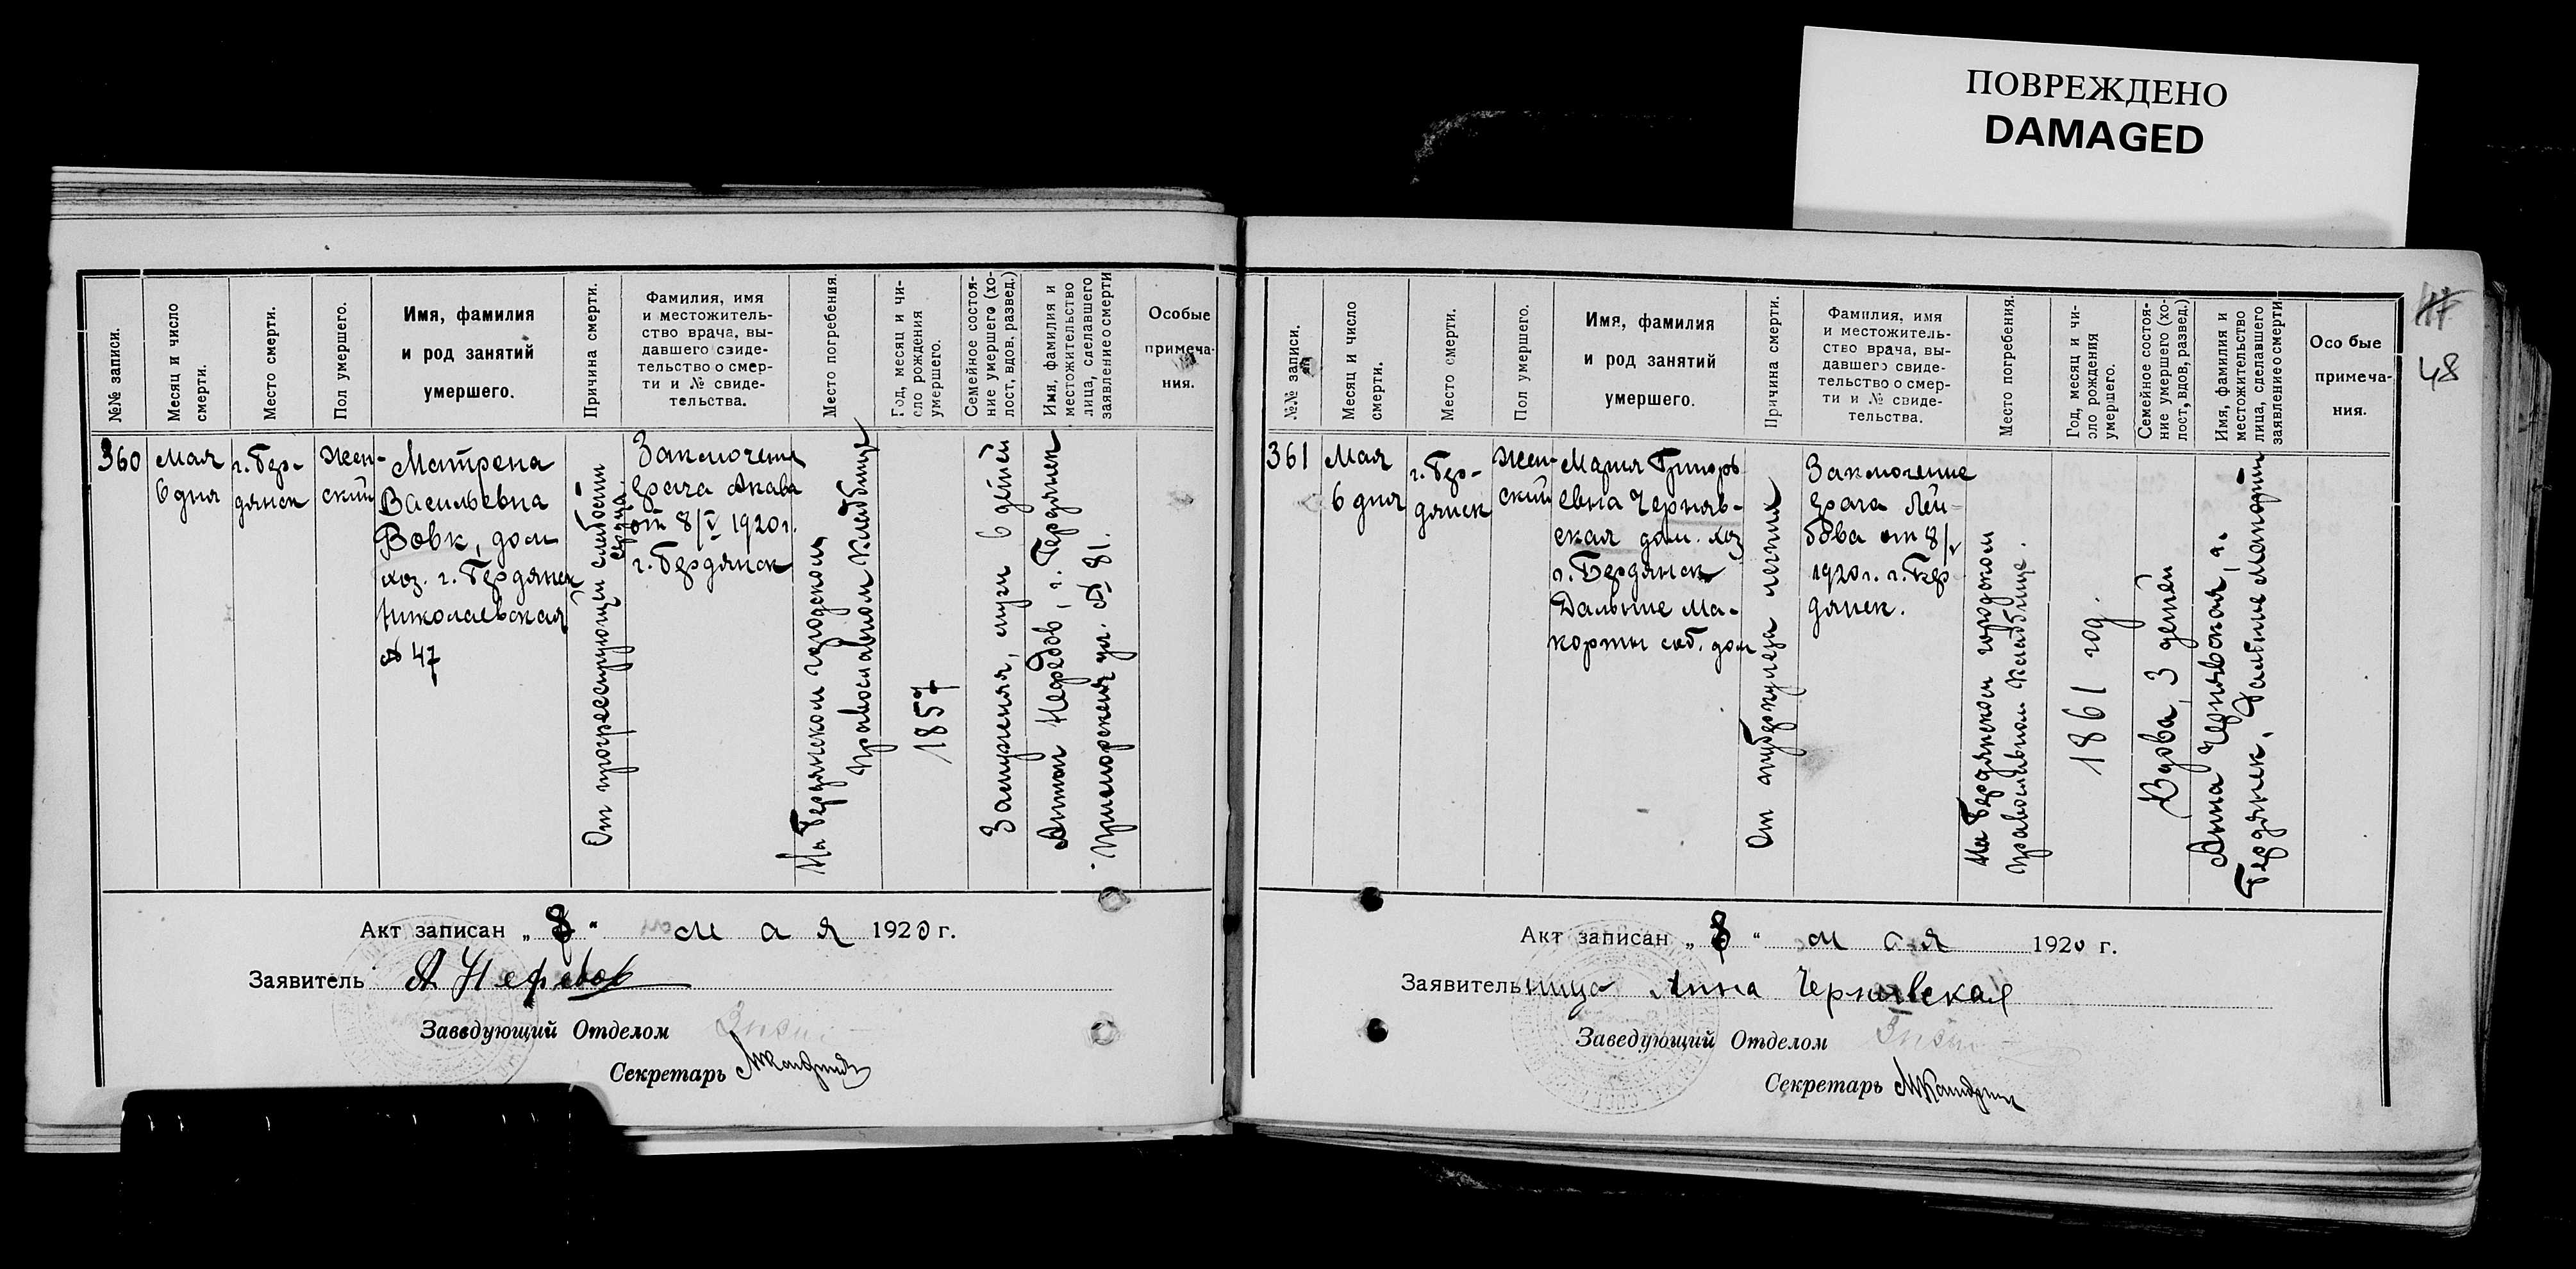 ПОВРЕЖДЕНО
DAMAGED
№№ записи.
Месяц и число
смерти.
Место смерти.
Пол умершего.
Имя, фамилия
и род занятий
умершего.
Причина смерти.
Фамилия, имя
и местожитель-
ство врача, вы-
давшего свиде-
тельство о смер-
ти и № свиде-
тельства.
Место погребения.
Год, месяц и чи-
сло рождения
умершего.
Семейное состоя-
ние умершего (хо-
лост, вдов, развед.)
Имя, фамилия и
местожительство
лица, сделавшего
заявление о смерти
Особые
примеча-
ния.
360
Мая
6 дня
г. Бер-
дянск
жен-
ский
Матрена
Васильевна
Вовк, дом
хоз. г. Бердянск
Николаевская
№ 47
От прогрессирующей слабости
сердца
Заключение
врача Акава
от 8/V 1920 г.
г. Бердянск
На Бердянском городском
православном кладбище
1857
Замужняя, муж 6 детей
Антон г. Бердянск
Приморская ул. № 81.
Акт записан „8“ мая 1920 г.
Заявитель
Заведующий Отделом
Секретарь
№№ записи.
Месяц и число
смерти.
Место смерти.
Пол умершего.
Имя, фамилия
и род занятий
умершего.
Причина смерти.
Фамилия, имя
и местожитель-
ство врача, вы-
давшего свиде-
тельство о смер-
ти и № свиде-
тельства.
Место погребения.
Год, месяц и чи-
эло рождения
умершего.
Семейное состоя-
ние умершего (хо-
лост, вдов, развед.)
Имя, фамилия и
местожительство
лица, сделавшего
заявление о смерти
Осо бые
примеча-
ния.
48
361
Мая
6 дня
г. Бер-
дянск
Жен-
ский
Мария Григорь
евна Черняв-
ская дом. хоз
г. Бердянск
Дальние Ма-
корты соб. дом
От туберкулеза легких
Заключение
врача Лей-
бова от 8/V
1920 г. г. Бер
дянск.
На Бердянском городском
православном кладбище.
1861 год.
Вдова, 3 детей
Анна Чернявская, г.
Бердянск, Дальние Макорты
Акт записан „8“ мая 1920 г.
Заявительница Анна Чернявская
Заведующий Отделом
Секретарь